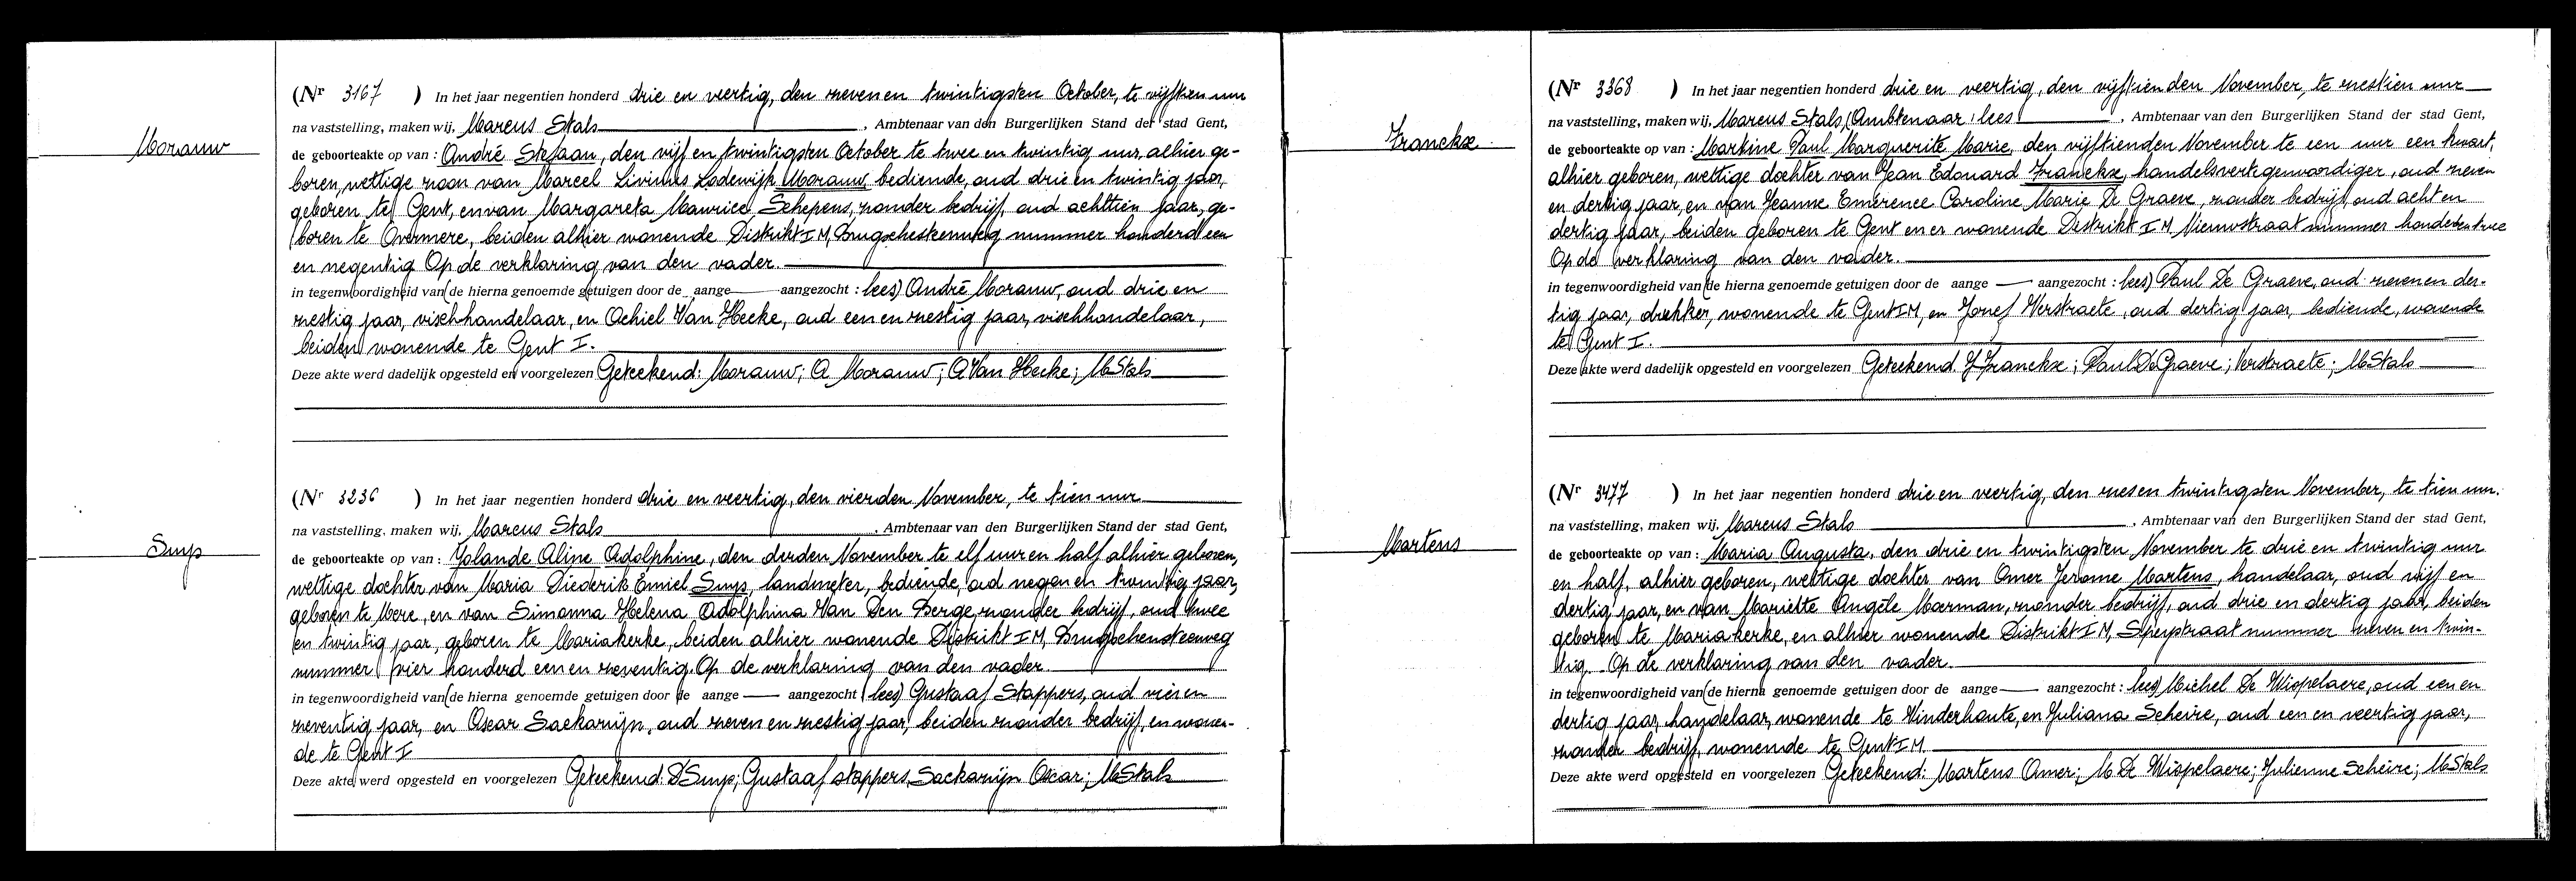 Morauw
(Nr 3167 ) In het jaar negentien honderd drie en veertig, den zeven en twintigsten October, te vijftien uur
na vaststelling, maken wij, Marcus Stals, Ambtenaar van den Burgerlijken Stand der stad Gent,
de geboorteakte op van : André Stefaan, den vijf en twintigsten October te twee en twintig uur, alhier ge-
boren, wettige zoon van Marcel Livinus Lodewijk Morauw, bediende, oud drie en twintig jaar,
geboren te Gent, en van Margareta Maurice Schepens, zonder bedrijf, oud achttien jaar, ge-
boren te Overmere, beiden alhier wonende Distrikt I M, Brugschesteenweg nummer honderd een
en negentig. Op de verklaring van den vader.
in tegenwoordigheid van (de hierna genoemde getuigen door de aange aangezocht : lees) André Morauw, oud drie en
zestig jaar, vischhandelaar, en Achiel Van Hecke, oud een en zestig jaar, vischhandelaar,
beiden wonende te Gent I.
Deze akte werd dadelijk opgesteld en voorgelezen Geteekend: Morauw; A Morauw; A Van Hecke; M Stals
Smys
(Nr 3236 ) In het jaar negentien honderd drie en veertig, den vierden November, te tien uur
na vaststelling, maken wij, Marcus Stals, Ambtenaar van den Burgerlijken Stand der stad Gent,
de geboorteakte op van : Yolande Aline Adolphine, den derden November te elf uur en half alhier geboren,
wettige dochter van Maria Diederik Emiel Smys, landmeter, bediende, oud negen en twintig jaar,
geboren te Mere, en van Simonna Helena Adolphina Van Den Berge, zonder bedrijf, oud twee
en twintig jaar, geboren te Mariakerke, beiden alhier wonende Distrikt I M, Brugschensteenweg
nummer vier honderd een en zeventig. Op de verklaring van den vader.
in tegenwoordigheid van (de hierna genoemde getuigen door de aange aangezocht lees) Gustaaf Stappers, oud vier en
zeventig jaar, en Oscar Sackarnijn, oud zeven en zestig jaar, beiden zonder bedrijf, en wonen-
de te Gent I
Deze akte werd opgesteld en voorgelezen Geteekend: D Smys; Gustaaf Stappers, Sackarnijn Oscar; M Stals
Franckx
(Nr 3368 ) In het jaar negentien honderd drie en veertig, den vijftienden November, te zestien uur
na vaststelling, maken wij, Marcus Stals, (Ambtenaar : lees , Ambtenaar van den Burgerlijken Stand der stad Gent,
de geboorteakte op van : Martine Paul Marguerite Marie, den vijftienden November te een uur een kwart,
alhier geboren, wettige dochter van Jean Edouard Franckx, handelsvertegenwoordiger, oud zeven
en dertig jaar, en van Jeanne Emérence Caroline Marie De Graeve, zonder bedrijf, oud acht en
dertig jaar, beiden geboren te Gent en er wonende Distrikt I M, Nieuwstraat nummer honderd en twee
Op de verklaring van den vader.
in tegenwoordigheid van (de hierna genoemde getuigen door de aange aangezocht : lees) Paul De Graeve, oud zeven en der-
tig jaar, drukker, wonende te Gent I M, en Jozef Verstraete, oud dertig jaar, bediende, wonende
te Gent I.
Deze akte werd dadelijk opgesteld en voorgelezen Geteekend J Franckx; Paul De Graeve; Verstraete; M Stals
Martens
(Nr 3477 ) In het jaar negentien honderd drie en veertig, den zes en twintigsten November, te tien uur.
na vaststelling, maken wij, Marcus Stals, Ambtenaar van den Burgerlijken Stand der stad Gent,
de geboorteakte op van : Maria Augusta, den drie en twintigsten November te drie en twintig uur
en half, alhier geboren, wettige dochter van Omer Jerome Martens, handelaar, oud vijf en
dertig jaar, en van Mariette Angèle Moerman, zonder bedrijf, oud drie en dertig jaar, beiden
geboren te Mariakerke, en alhier wonende Distrikt I M, Speystraat nummer zeven en twin-
tig. Op de verklaring van den vader.
in tegenwoordigheid van (de hierna genoemde getuigen door de aange aangezocht : lees) Michel De Wispelaere, oud een en
dertig jaar, handelaar, wonende te Vinderhoute, en Juliana Scheire, oud een en veertig jaar,
zonder bedrijf, wonende te Gent I M.
Deze akte werd opgesteld en voorgelezen Geteekend: Martens Omer; M De Wispelaere; Julienne Scheire; M Stals